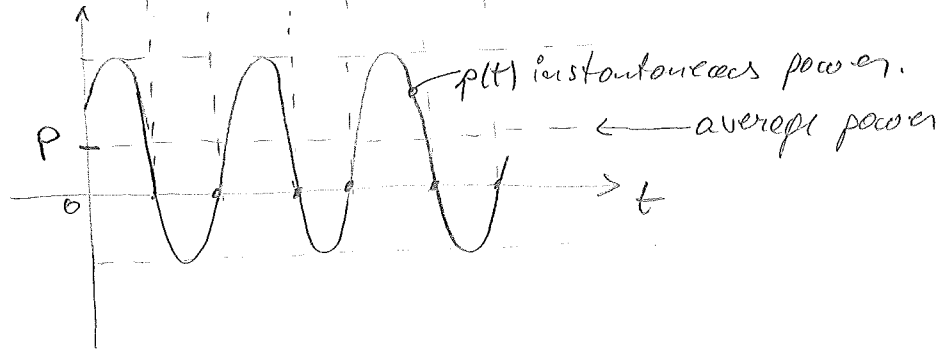 p(t) instantaneous power.
← average power
P
0
t